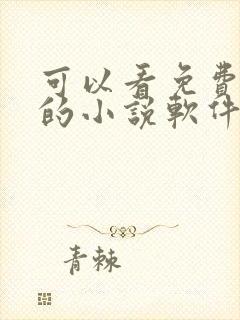 可以看免費
的小說軟件
青棘